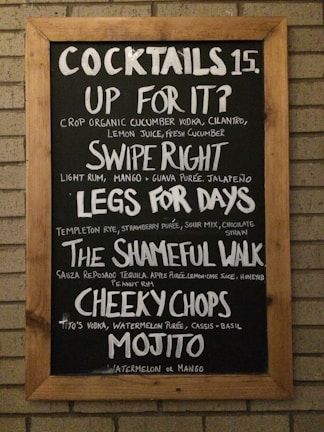 COCKTAILS 15.
UP FOR IT?
CROP ORGANIC CUCUMBER VODKA, CILANTRO,
LEMON JUICE, FRESH CUCUMBER
SWIPE RIGHT
LIGHT RUM, MANGO + GUAVA PURÉE, JALAPEÑO
LEGS FOR DAYS
TEMPLETON RYE, STRAWBERRY PURÉE, SOUR MIX, CHOCOLATE
STRAW
THE SHAMEFUL WALK
SAUZA REPOSADO TEQUILA, APPLE PURÉE, LEMON-LIME JUICE,
RIM
CHEEKY CHOPS
TITO'S VODKA, WATERMELON PURÉE, CASSIS - BASIL
MOJITO
WATERMELON OR MANGO